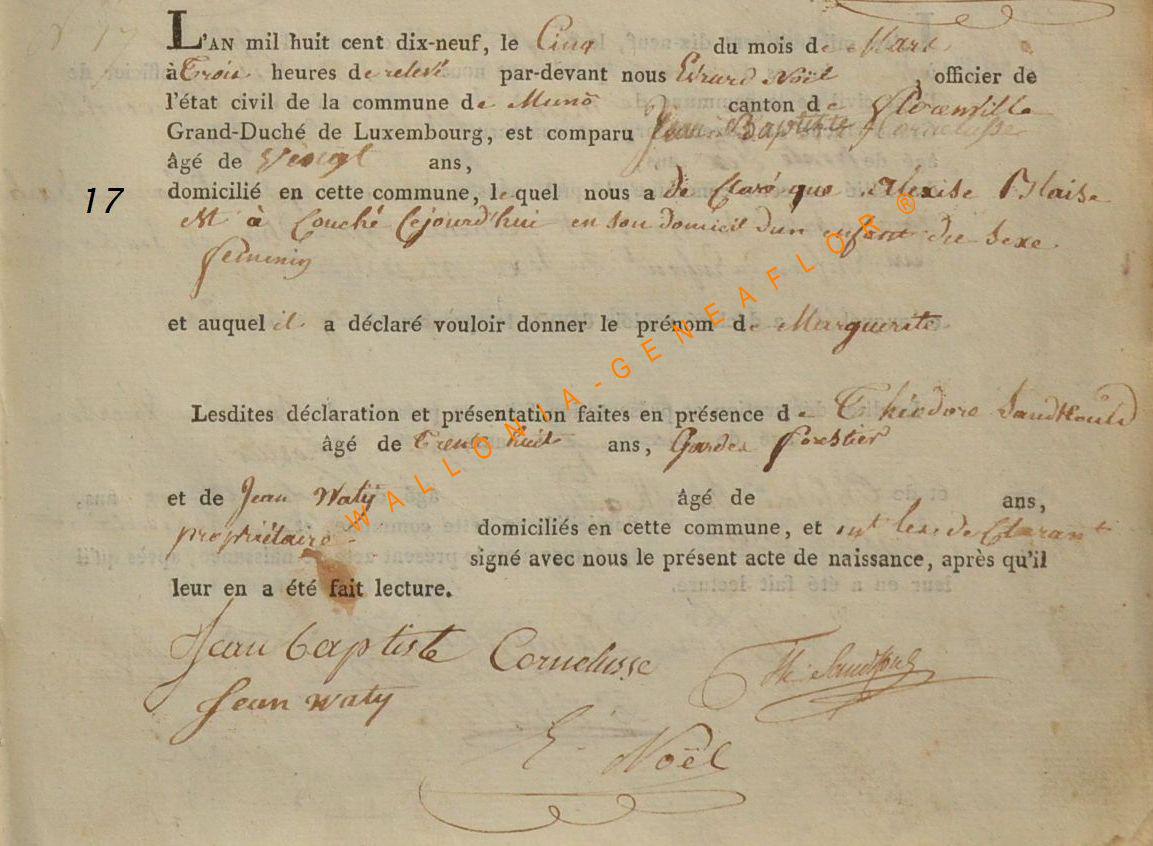 L'AN mil huit cent dix-neuf, le Cinq du mois de Mars
à Trois heures de relevé par-devant nous Evrard Noël, officier de
l'état civil de la commune de Muno canton de Florenville
Grand-Duché de Luxembourg, est comparu Jean Baptiste Cornelusse
âgé de Vingt ans,
17
domicilié en cette commune, lequel nous a de Claré que Alexise Blaise
Et à Couché Cejourd'hui en son domicil dun enfant du Sexe
feminin
et auquel il a déclaré vouloir donner le prénom de Marguerite
Lesdites déclaration et présentation faites en présence de Théodore
âgé de Trent huit ans, Gardes forestier
et de Jean Waty âgé de ans,
propriétaire domiciliés en cette commune, et ont les de Clarant
signé avec nous le présent acte de naissance, après qu'il
leur en a été fait lecture.
Jean baptiste Cornelusse Th:
Jean waty
E. Noël
WALLONIA-GENEAFLOR ®